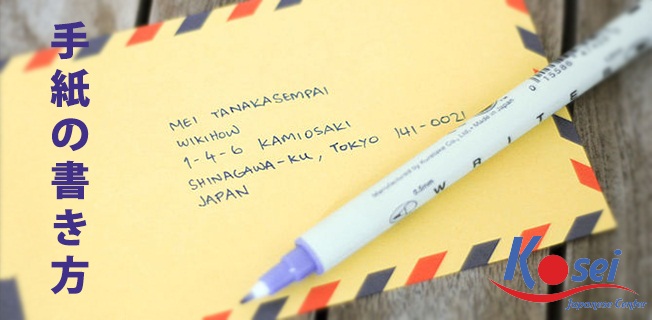 手紙の書き方
MEI TANAKASEMPAI
WIKIHOW
1-4-6 KAMIOSAKI
SHINAGAWA-KU, TOKYO 141-0021
JAPAN
Manufactured by Kuretake Co., Ltd. Made in Japan
0.5mm
WRITE
Kosei
Japanese Center